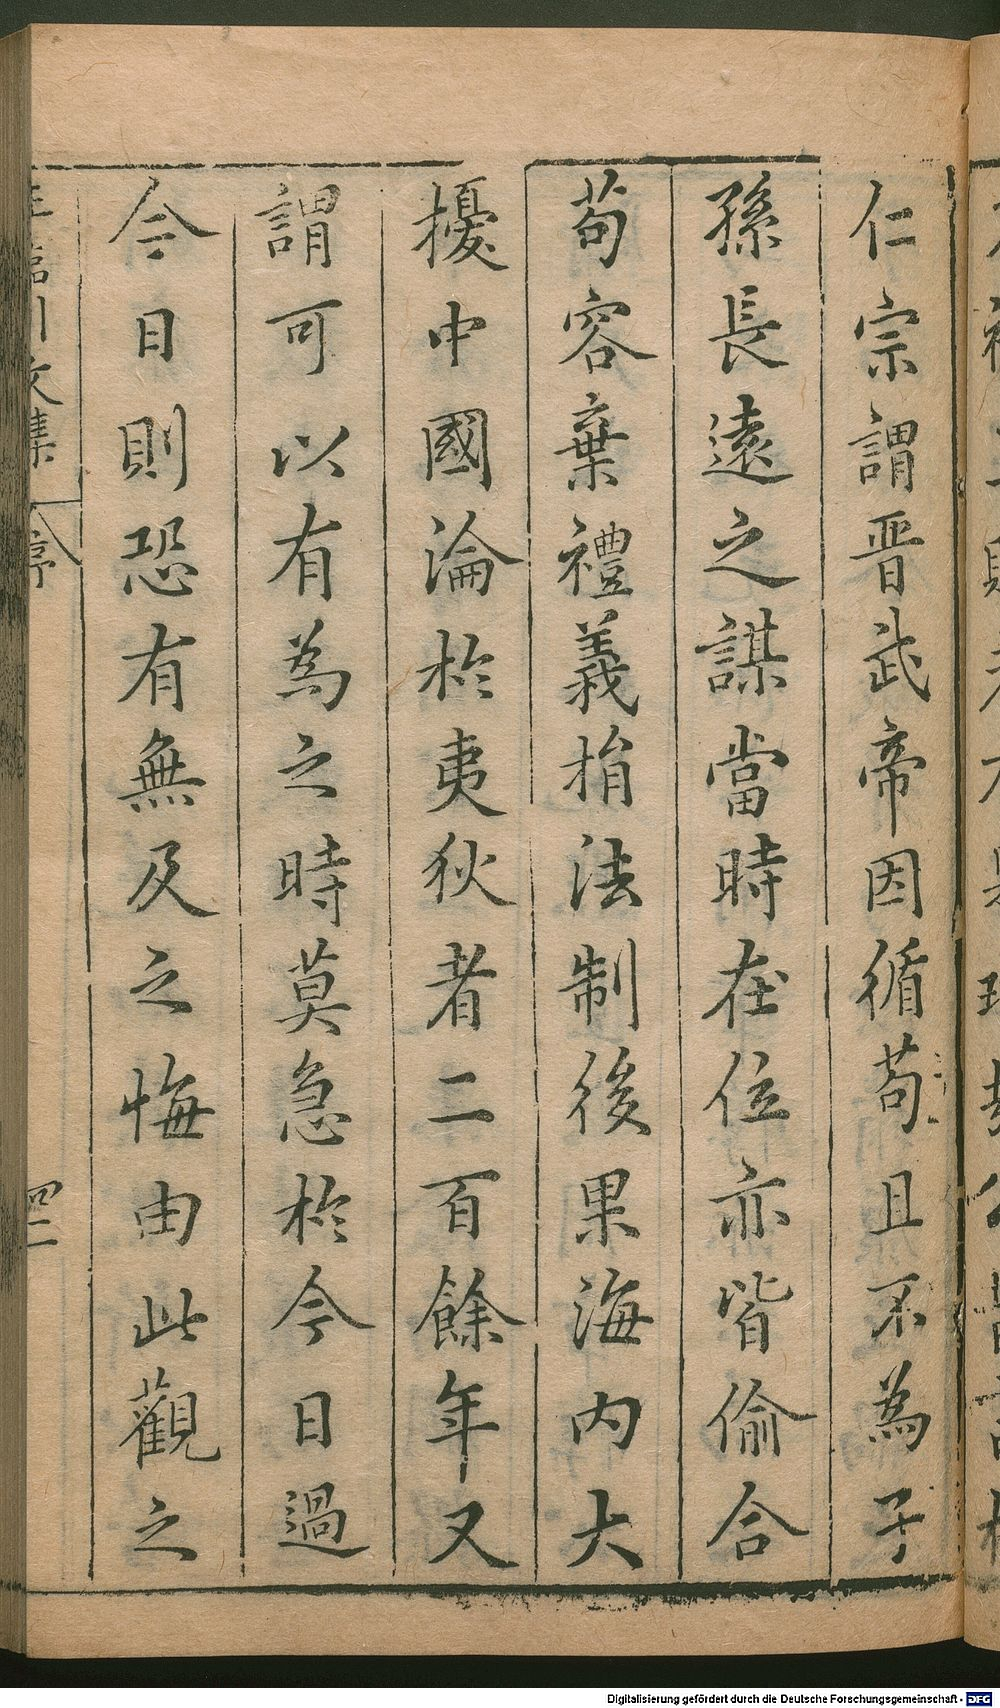 仁宗謂晉武帝因循苟且不為子
孫長遠之謀當時在位亦皆偷合
苟容棄禮義捐法制後果海內大
擾中國淪於夷狄者二百餘年又
謂可以有為之時莫急於今日過
今日則恐有無及之悔由此觀之
王臨川文集 序
四二
Digitalisierung gefördert durch die Deutsche Forschungsgemeinschaft - DFG